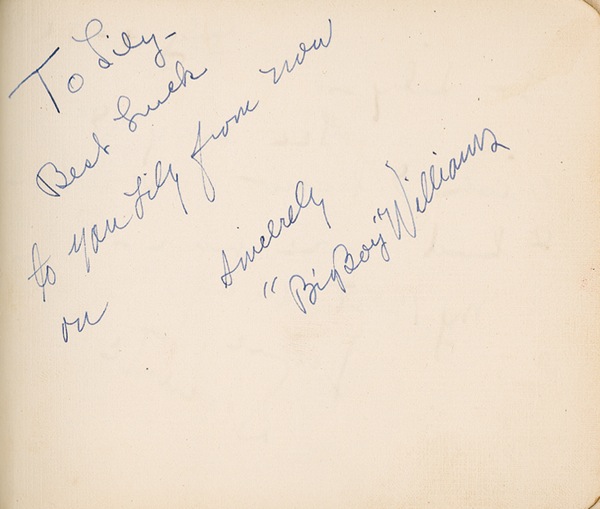 To Lily-
Best Luck
to you Lily from now
on
Sincerely
"Big Boy" Williams